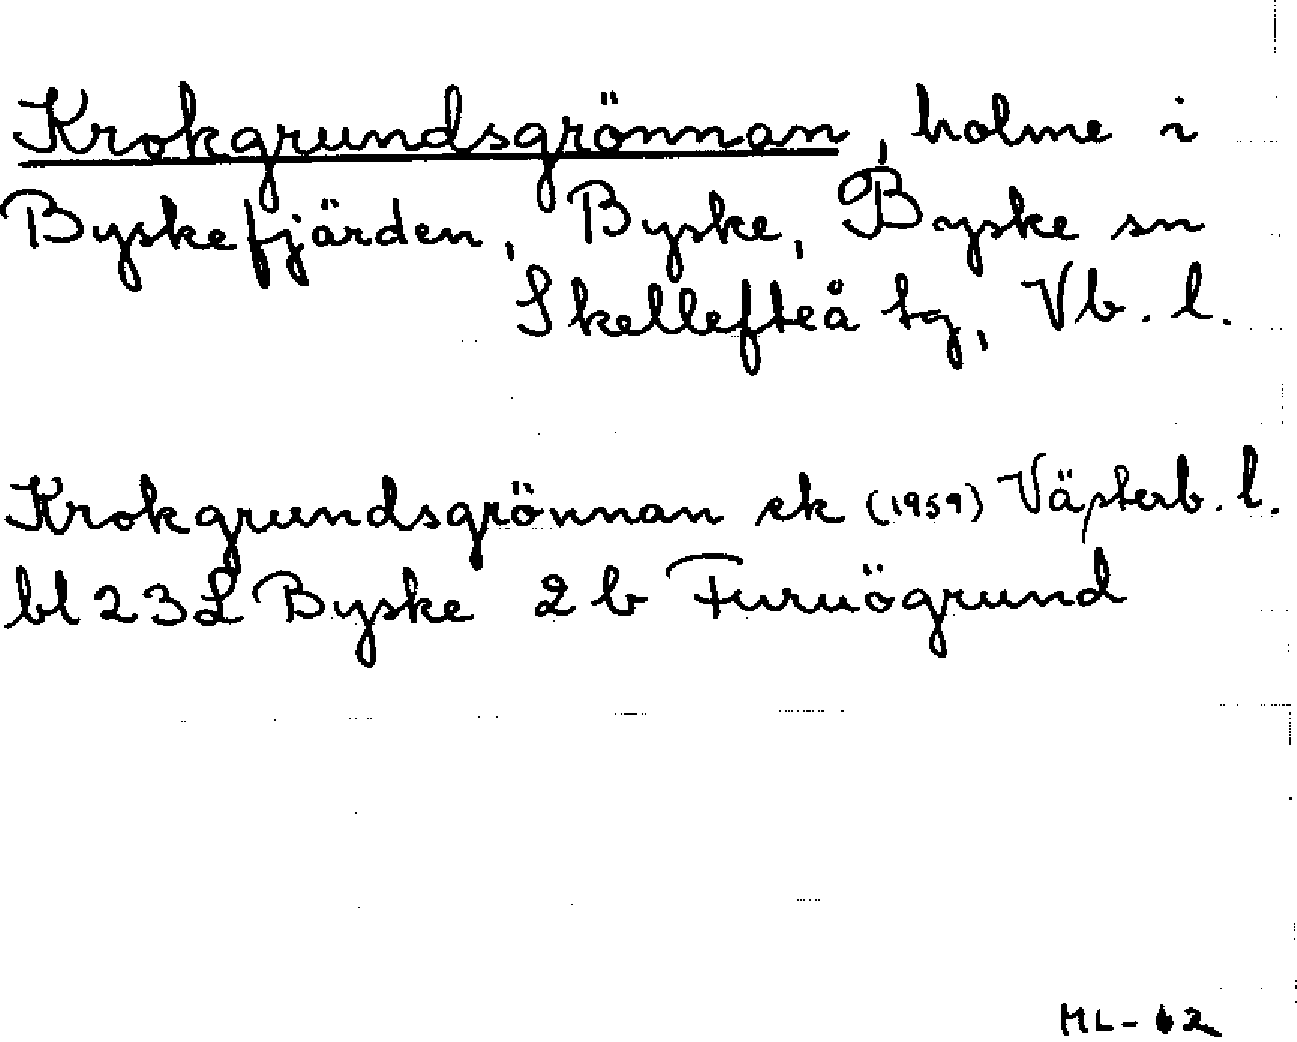 Krokgrundsgrönnan, holme i
Byskefjärden, Byske, Byske sn
Skellefteå tg, Vb. l.
Krokgrundsgrönnan ek (1959) Västerb. l.
bl 23L Byske 2 b Furuögrund
ML-62